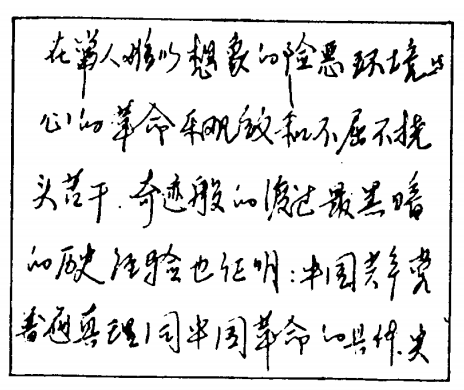 在常人难以想象的险恶环境
的革命乐观主义和不屈不挠
头苦干.奇迹般的渡过最黑暗
的历史经验也证明:中国共产党
普遍真理同中国革命的具体实